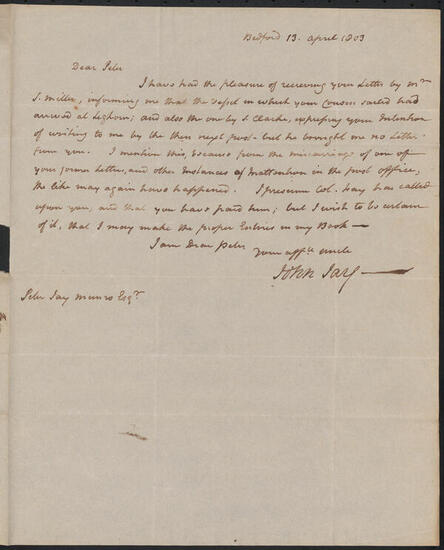 Bedford 13. April 1803
Dear Peter
I have had the pleasure of recieving your Letter by mr
S. miller, informing me that the vessel in which your Cousin sailed had
arrived at Leghorn; and also the one by S. Clarke, expressing your Intention
of writing to me by the then next post - but he brought me no Letter
from you. I mention this, because from the miscarriage of one of
your former Letters, and other Instances of Inattention in the post office,
the like may again have happened. I presume Col. Hay has called
upon you, and that you have paid him; but I wish to be certain
of it, that I may make the proper Entries in my Book —
I am Dear Peter
your affte. uncle
John Jay —
Peter Jay Munro Esqr.